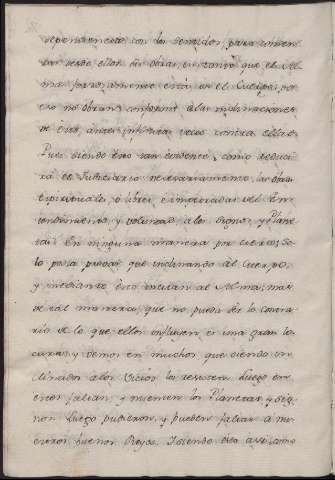 dependencia con los sentidos, para comen
zar desde ellos sus obras, en tanto que el Al
ma forzosamente está en el Cuerpo, por
eso no obran conforme a las inclinaciones
de este, antes infinitas veces contra ellas.
Pues siendo esto tan evidente, como
el Judiciario necesariamente las obras
espirituales, o libres, e imperadas del En
tendimiento, y voluntad a los signos, y Plane
tas. En ninguna manera por cierto; So
lo podra probar que inclinando al Cuerpo,
y mediante este incitan al Alma; mas
de tal manera, que no pueda ser lo contra
rio de lo que ellos influyen, es una gran lo
cura; y vemos en muchos que siendo in
clinados a los Vicios los resisten: Luego en
estos faltan, y mienten los Planetas, y sig
nos: Luego pudieron, y pueden faltar a
buenos Reyes. Y siendo esto asi, como